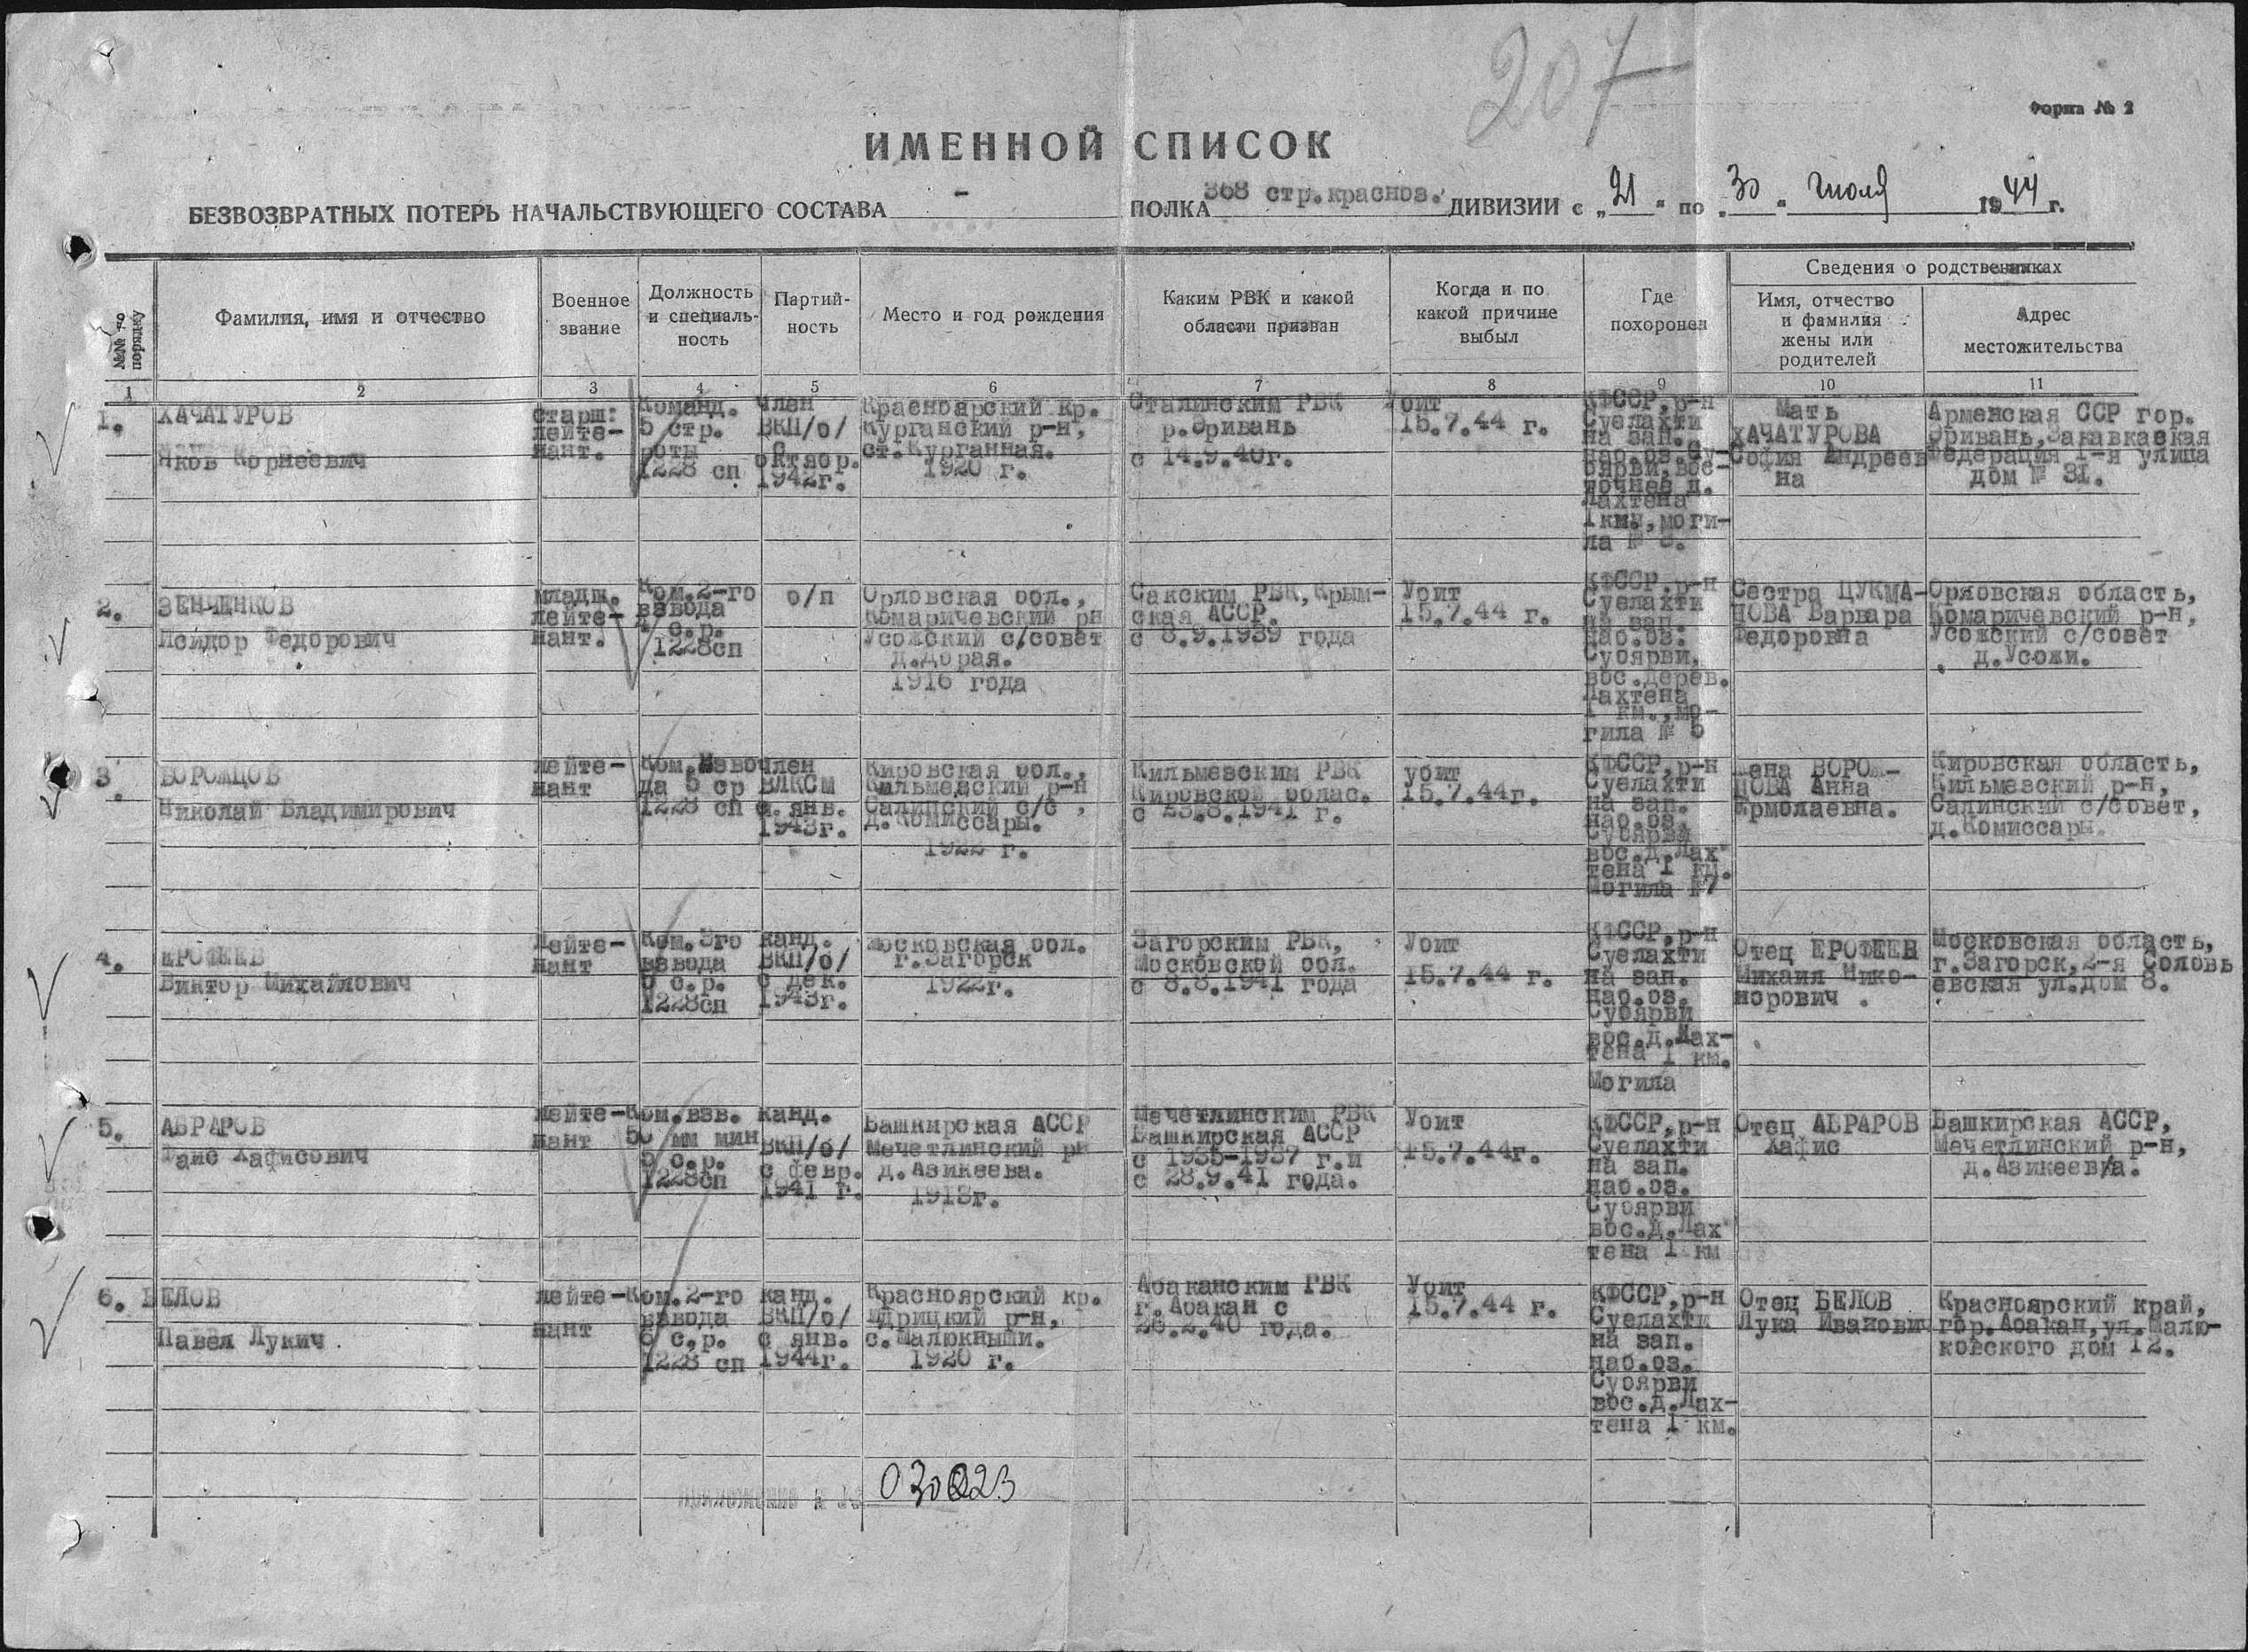 207
Форма № 2
ИМЕННОЙ СПИСОК
БЕЗВОЗВРАТНЫХ ПОТЕРЬ НАЧАЛЬСТВУЮЩЕГО СОСТАВА - ПОЛКА 368 стр.красноз. ДИВИЗИИ с „21" по „30" июля 1944 г.
№№ по порядку
Фамилия, имя и отчество
Военное звание
Должность и специаль-
ность
Партий-
ность
Место и год рождения
Каким РВК и какой
области призван
Когда и по
какой причине
выбыл
Где
похоронен
Сведения о родственниках
Имя, отчество
и фамилия
жены или
родителей
Адрес
местожительства
1 2 3 4 5 6 7 8 9 10 11
1.
ХАЧАТУРОВ
Яков Корнеевич
старш.
лейте-
нант.
Команд.
5 стр.
роты
1228 сп
член
ВКП/б/
с
октябр.
1942г.
Красноярский кр.
Курганский р-н,
ст.Курганная.
1920 г.
Сталинским РВК
г.Эривань
с 14.9.40г.
Убит
15.7.44 г.
КФССР,р-н
Суелахти
на зап.
наб.оз.Су-
оярви,вос-
точнее д.
Лахтена
1 км.,моги-
ла №
Мать
ХАЧАТУРОВА
София Андреев
на
Армянская ССР гор.
Эривань,Закавказкая
Федерация 1-я улица
дом № 31.
2.
ЗЕНЧЕНКОВ
Исидор Федорович
младш.
лейте-
нант.
Ком.2-го
взвода
с.р.
1228сп
б/п
Орловская обл.,
Комаричевский рн
Усожский с/совет
д.Добрая.
1916 года
Сакским РВК,Крым-
ская АССР.
с 8.9.1939 года
Убит
15.7.44 г.
КФССР,р-н
Суелахти
на зап.
наб.оз.
Суоярви,
вос.дерев.
Лахтена
1 км.,мо-
гила № 5
Сестра ЦУКМА-
НОВА Варвара
Федоровна
Орловская область,
Комаричевский р-н,
Усожский с/совет
д.Усожи.
3.
ВОРОЖЦОВ
Николай Владимирович
лейте-
нант
Ком.взво
да 5 ср
1228 сп
член
ВЛКСМ
с янв.
1943г.
Кировская обл.,
Кильмезский р-н
Салинский с/с ,
д.Комиссары.
1922 г.
Кильмезским РВК
Кировской облас.
с 23.8.1941 г.
убит
15.7.44г.
КФССР,р-н
Суелахти
на зап.
наб.оз.
Суоярви
вос.д.Лах
тена 1 км.
Могила №7
Жена ВОРОЖ-
ЦОВА Анна
Ермолаевна.
Кировская область,
Кильмезский р-н,
Салинский с/совет,
д.Комиссары.
4.
ЕРОФЕЕВ
Виктор Михайлович
Лейте-
нант
Ком.3го
взвода
5 с.р.
1228сп
канд.
ВКП/б/
с дек.
1943г.
Московская обл.
г.Загорск
1922г.
Загорским РВК,
Московской обл.
с 8.8.1941 года
Убит
15.7.44 г.
КФССР,р-н
Суелахти
на зап.
наб.оз.
Суоярви
вос.д.Лах-
тена 1 км.
Могила
Отец ЕРОФЕЕВ
Михаил Нико-
норович .
Московская область,
г.Загорск,2-я Соловь
евская ул.дом 8.
5.
АБРАРОВ
Фаис Хафисович
лейте-
нант
Ком.взв.
50 мм мин
5 с.р.
1228сп
канд.
ВКП/б/
с февр.
1941 г.
Башкирская АССР
Мечетлинский рн
д.Азикеева.
1918г.
Мечетлинским РВК
Башкирская АССР
с 1935-1937 г.и
с 28.9.41 года.
Убит
15.7.44г.
КФССР,р-н
Суелахти
на зап.
наб.оз.
Суоярви
вос.д.Лах
тена 1 км
Отец АБРАРОВ
Хафис
Башкирская АССР,
Мечетлинский р-н,
д.Азикеевка.
6.
БЕЛОВ
Павел Лукич
лейте-
нант
Ком.2-го
взвода
6 с.р.
1228 сп
канд.
ВКП/б/
с янв.
1944г.
Красноярский кр.
Идрицкий р-н,
с.Малюкныши.
1920 г.
Абаканским РВК
г.Абакан с
26.2.40 года.
Убит
15.7.44 г.
КФССР,р-н
Суелахти
на зап.
наб.оз.
Суоярви
вос.д.Лах-
тена 1 км.
Отец БЕЛОВ
Лука Иванович
Красноярский край,
гор.Абакан,ул.Малю-
ковского дом 12.
Приложение к №
030023